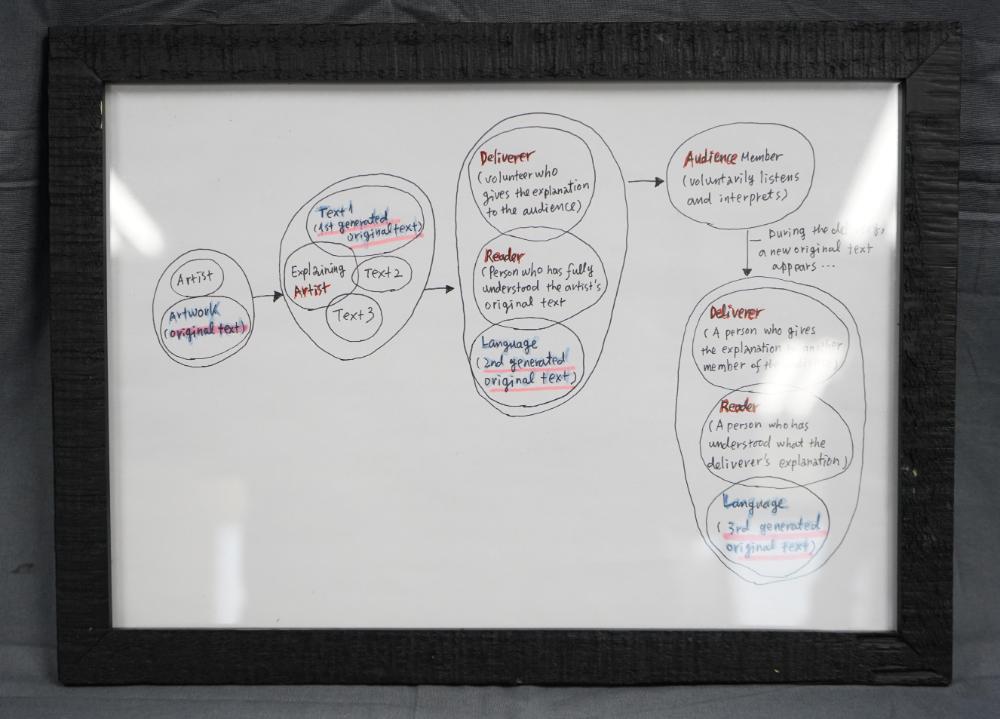 Artist
Artwork
(original text)
Text 1
(1st generated
original text)
Explaining
Artist
Text 2
Text 3
Deliverer
(volunteer who
gives the explanation
to the audience)
Reader
(Person who has fully
understood the artist's
original text
Language
(2nd generated
original text)
Audience Member
(voluntarily listens
and interprets)
During the
a new original text
appears ...
Deliverer
(A person who gives
the explanation
member of the
Reader
(A person who has
understood what the
deliverer's explanation)
Language
(3rd generated
original text)